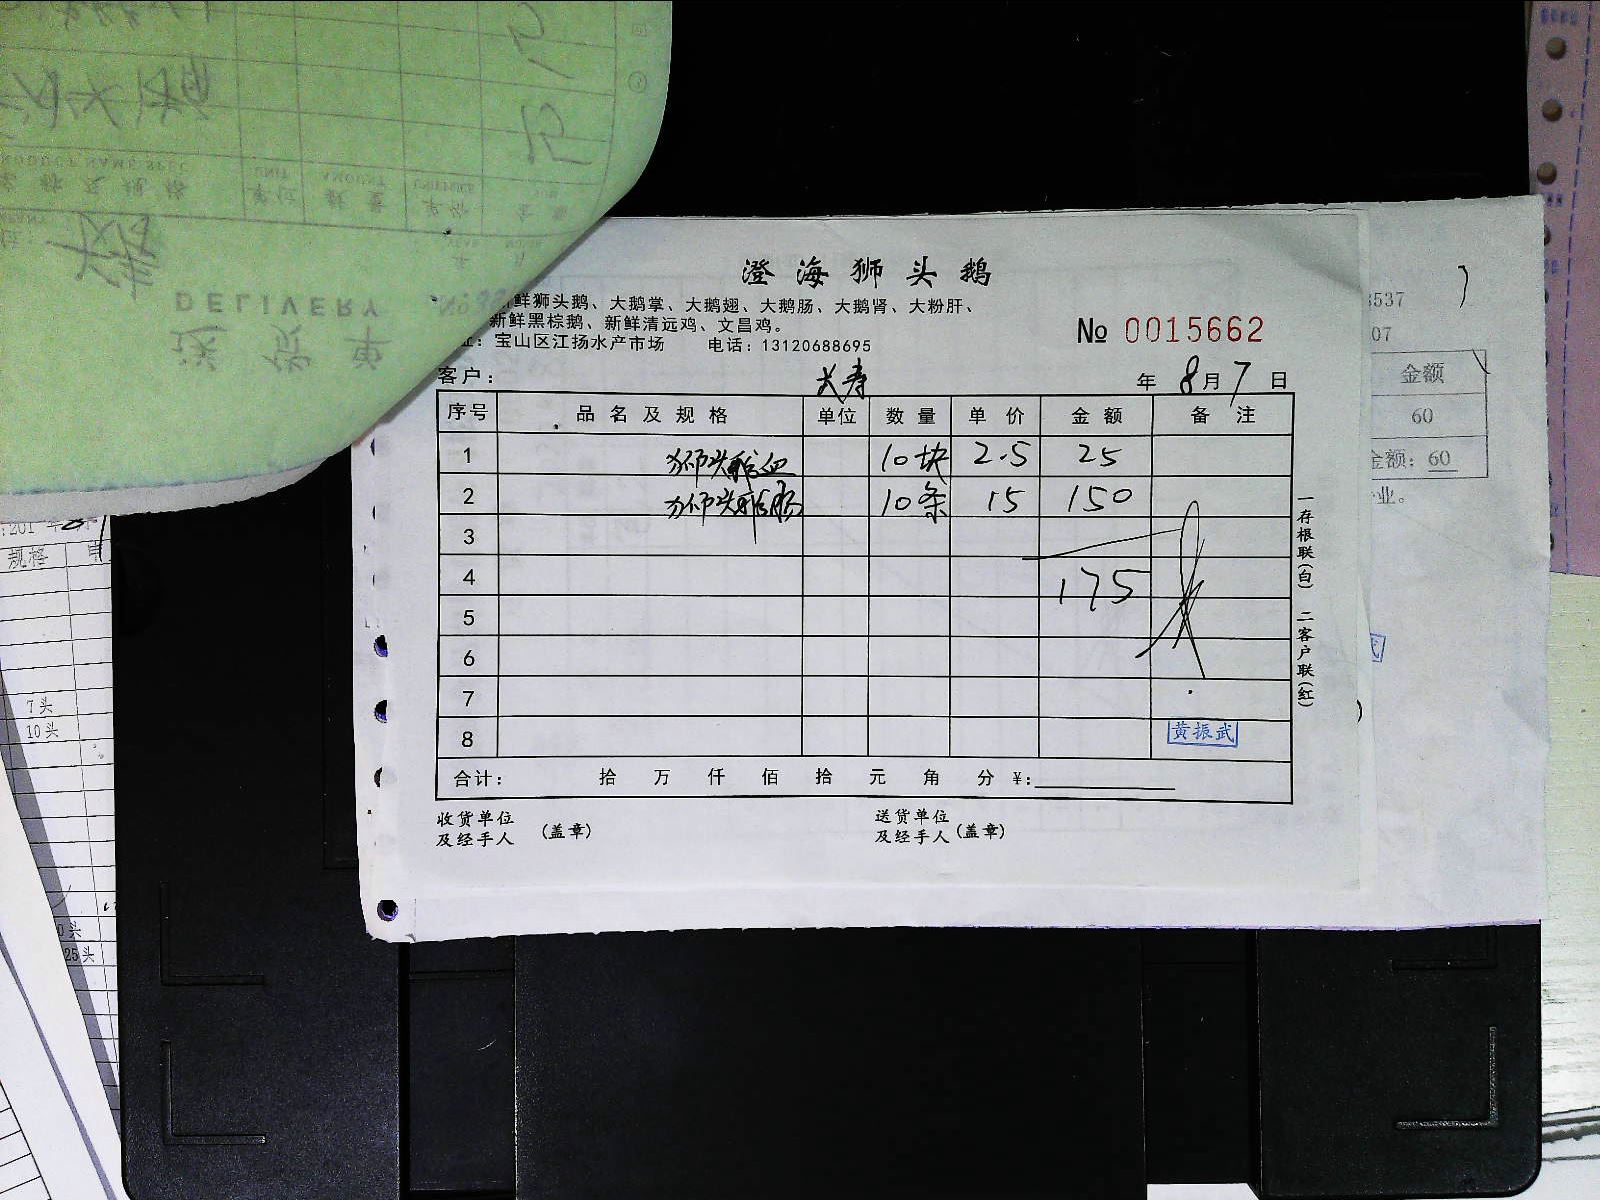 澄海狮头鹅
鲜狮头鹅、大鹅掌、大鹅翅、大鹅肠、大鹅肾、大粉肝、
新鲜黑棕鹅、新鲜清远鸡、文昌鸡。
№ 0015662
址：宝山区江扬水产市场 电话：13120688695
客户： 长寿 年 8月7日
序号 品名及规格 单位 数量 单价 金额 备注
1 狮头鹅血 10块 2.5 25
2 狮头鹅肠 10条 15 150
3
4 175
5
6
7
8 黄振武
合计： 拾 万 仟 佰 拾 元 角 分 ¥：
收货单位
及经手人 (盖章)
送货单位
及经手人 (盖章)
一存根联(白) 二客户联(红)
DELIVERY
送货单
PRODUCT NAME SPEC
UNIT
AMOUNT
单位
数量
单价
金额
3537
07
金额
60
金额：60
业。
武
规格
7头
10头
0头
25头